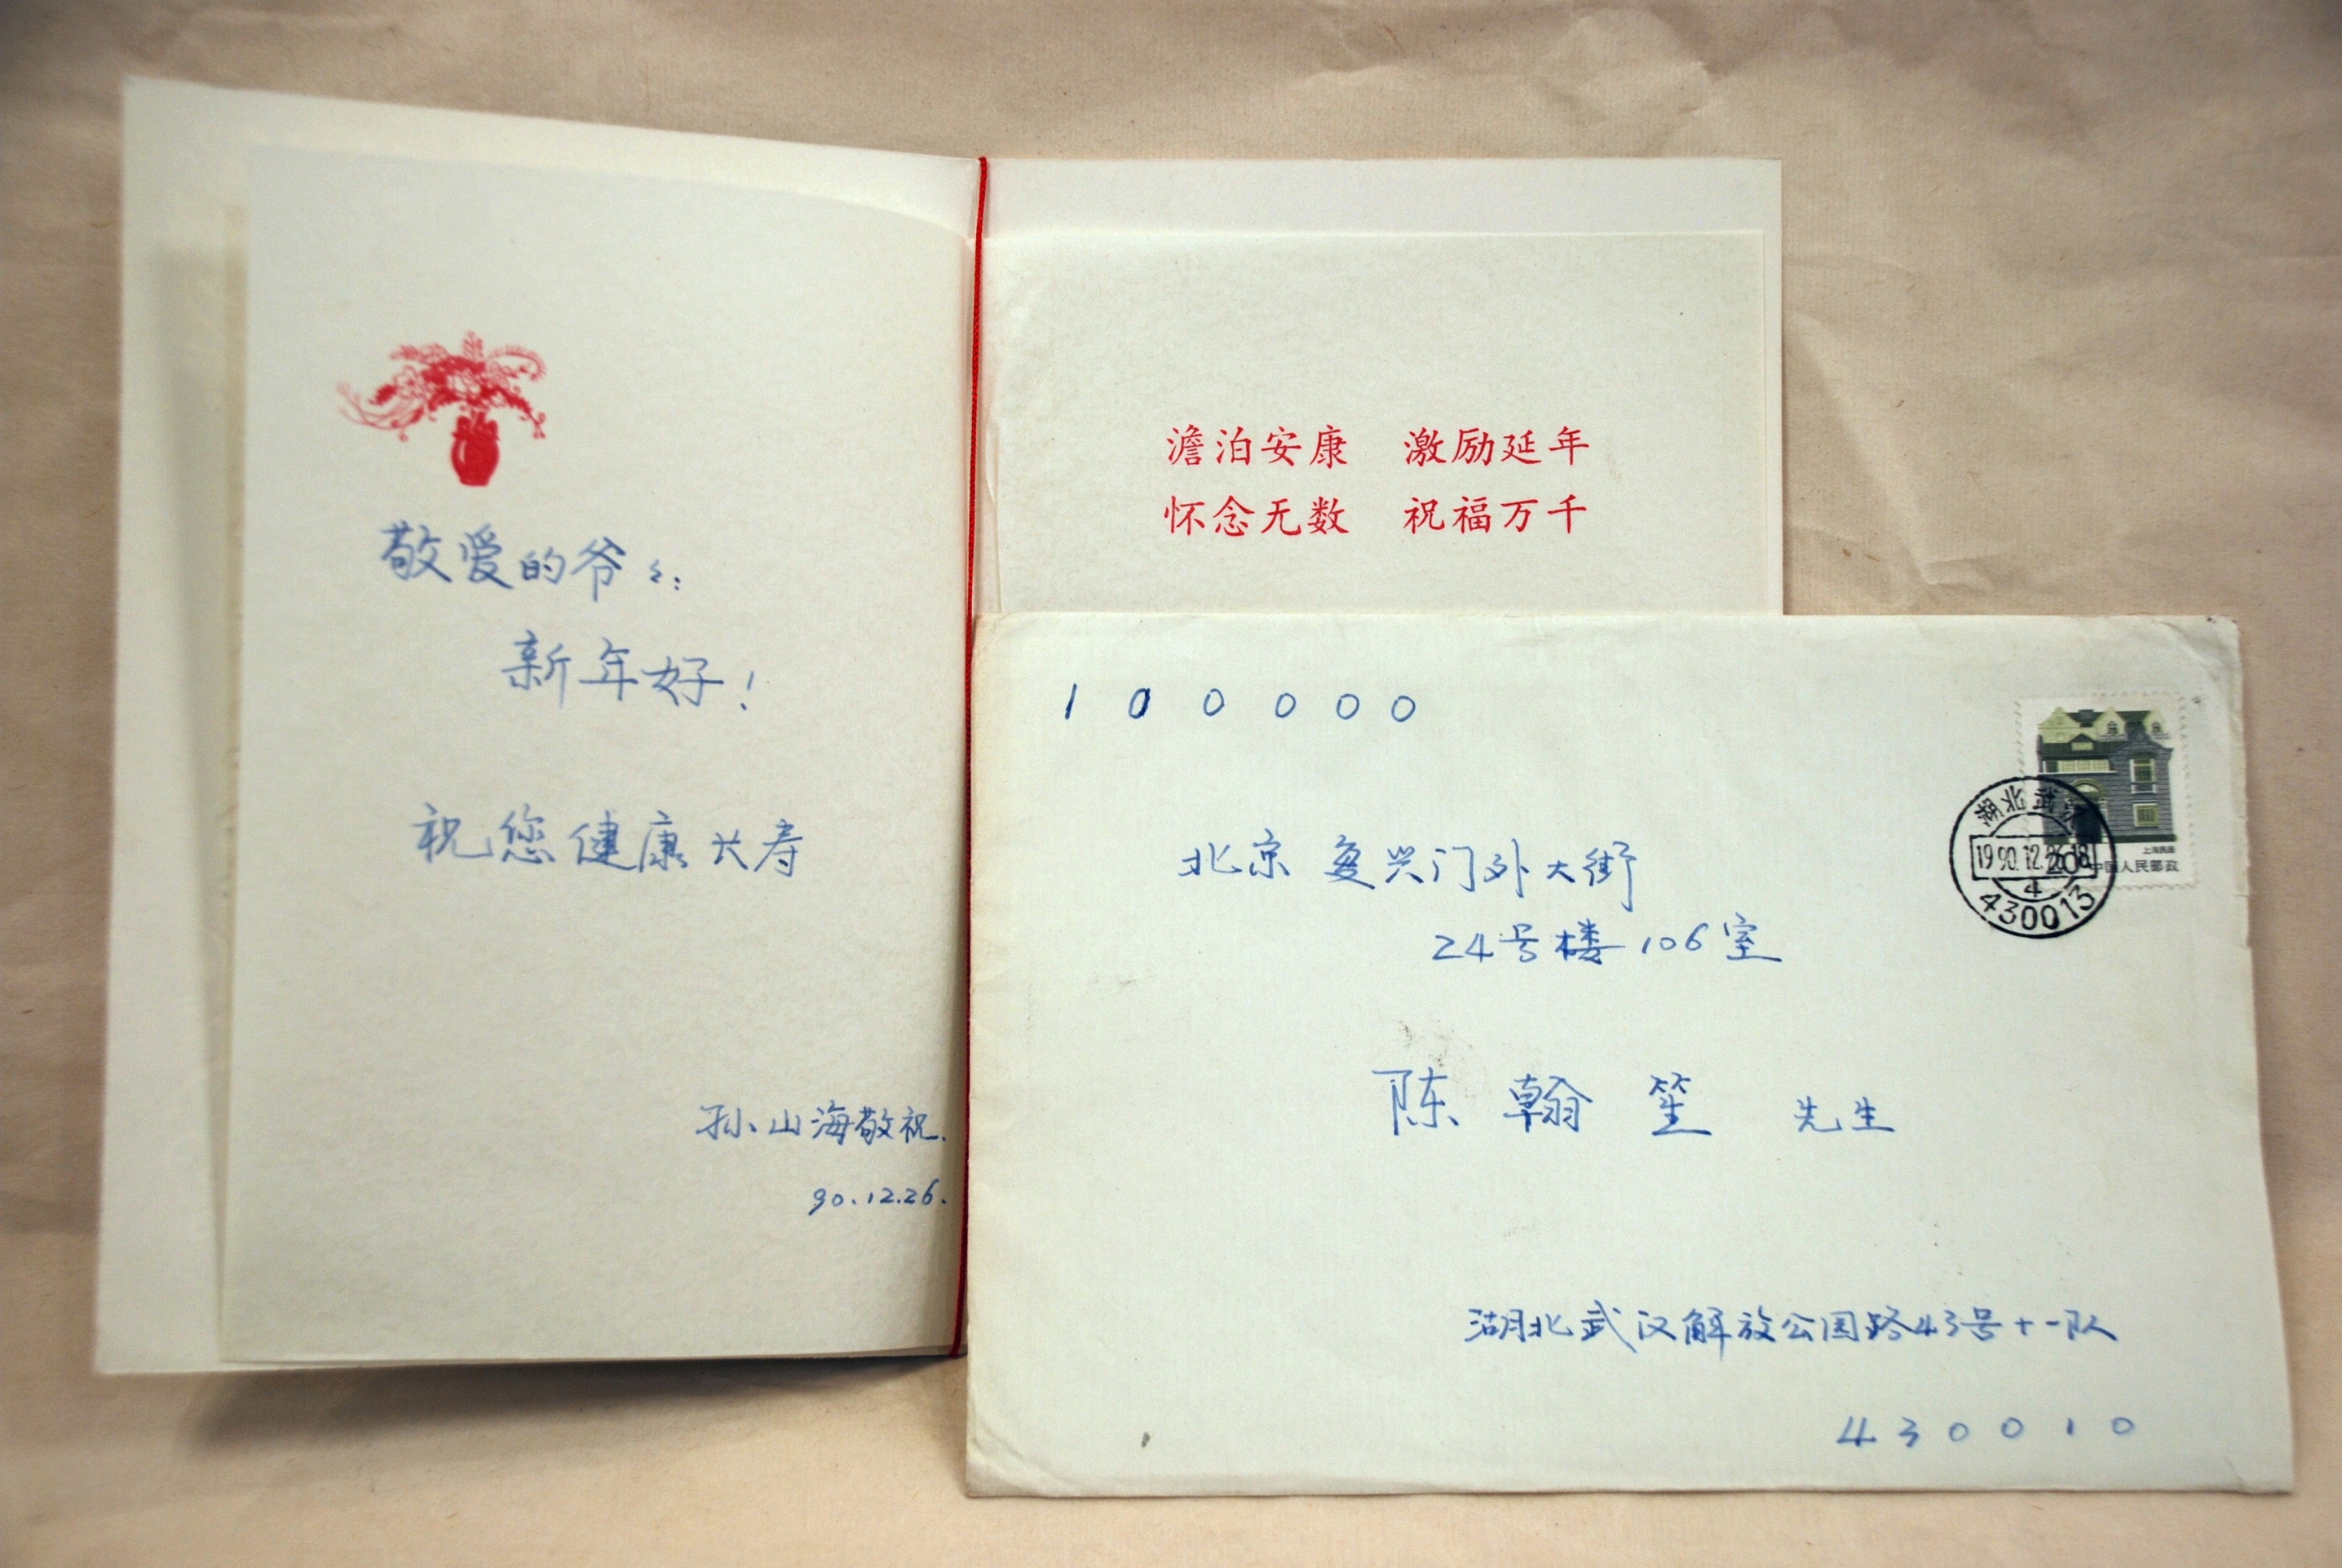 敬爱的爷々:
新年好!
祝您健康长寿
孙山海敬祝.
90.12.26.
澹泊安康 激励延年
怀念无数 祝福万千
100000
北京复兴门外大街
24号楼106室
陈翰笙 先生
湖北武汉解放公园路43号十一队
430010
上海民居
20
中国人民邮政
湖北武汉
1990.12.26.18
4
430013